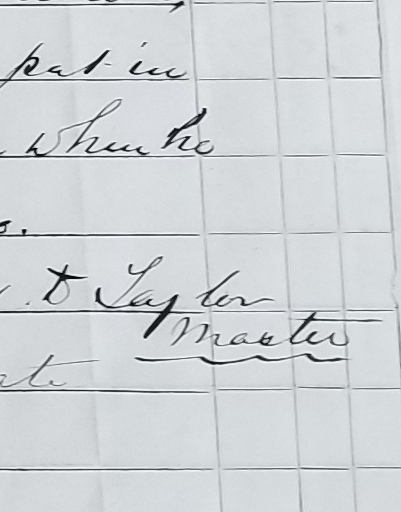 put in
when he
s.
. D Taylor
Master
ate